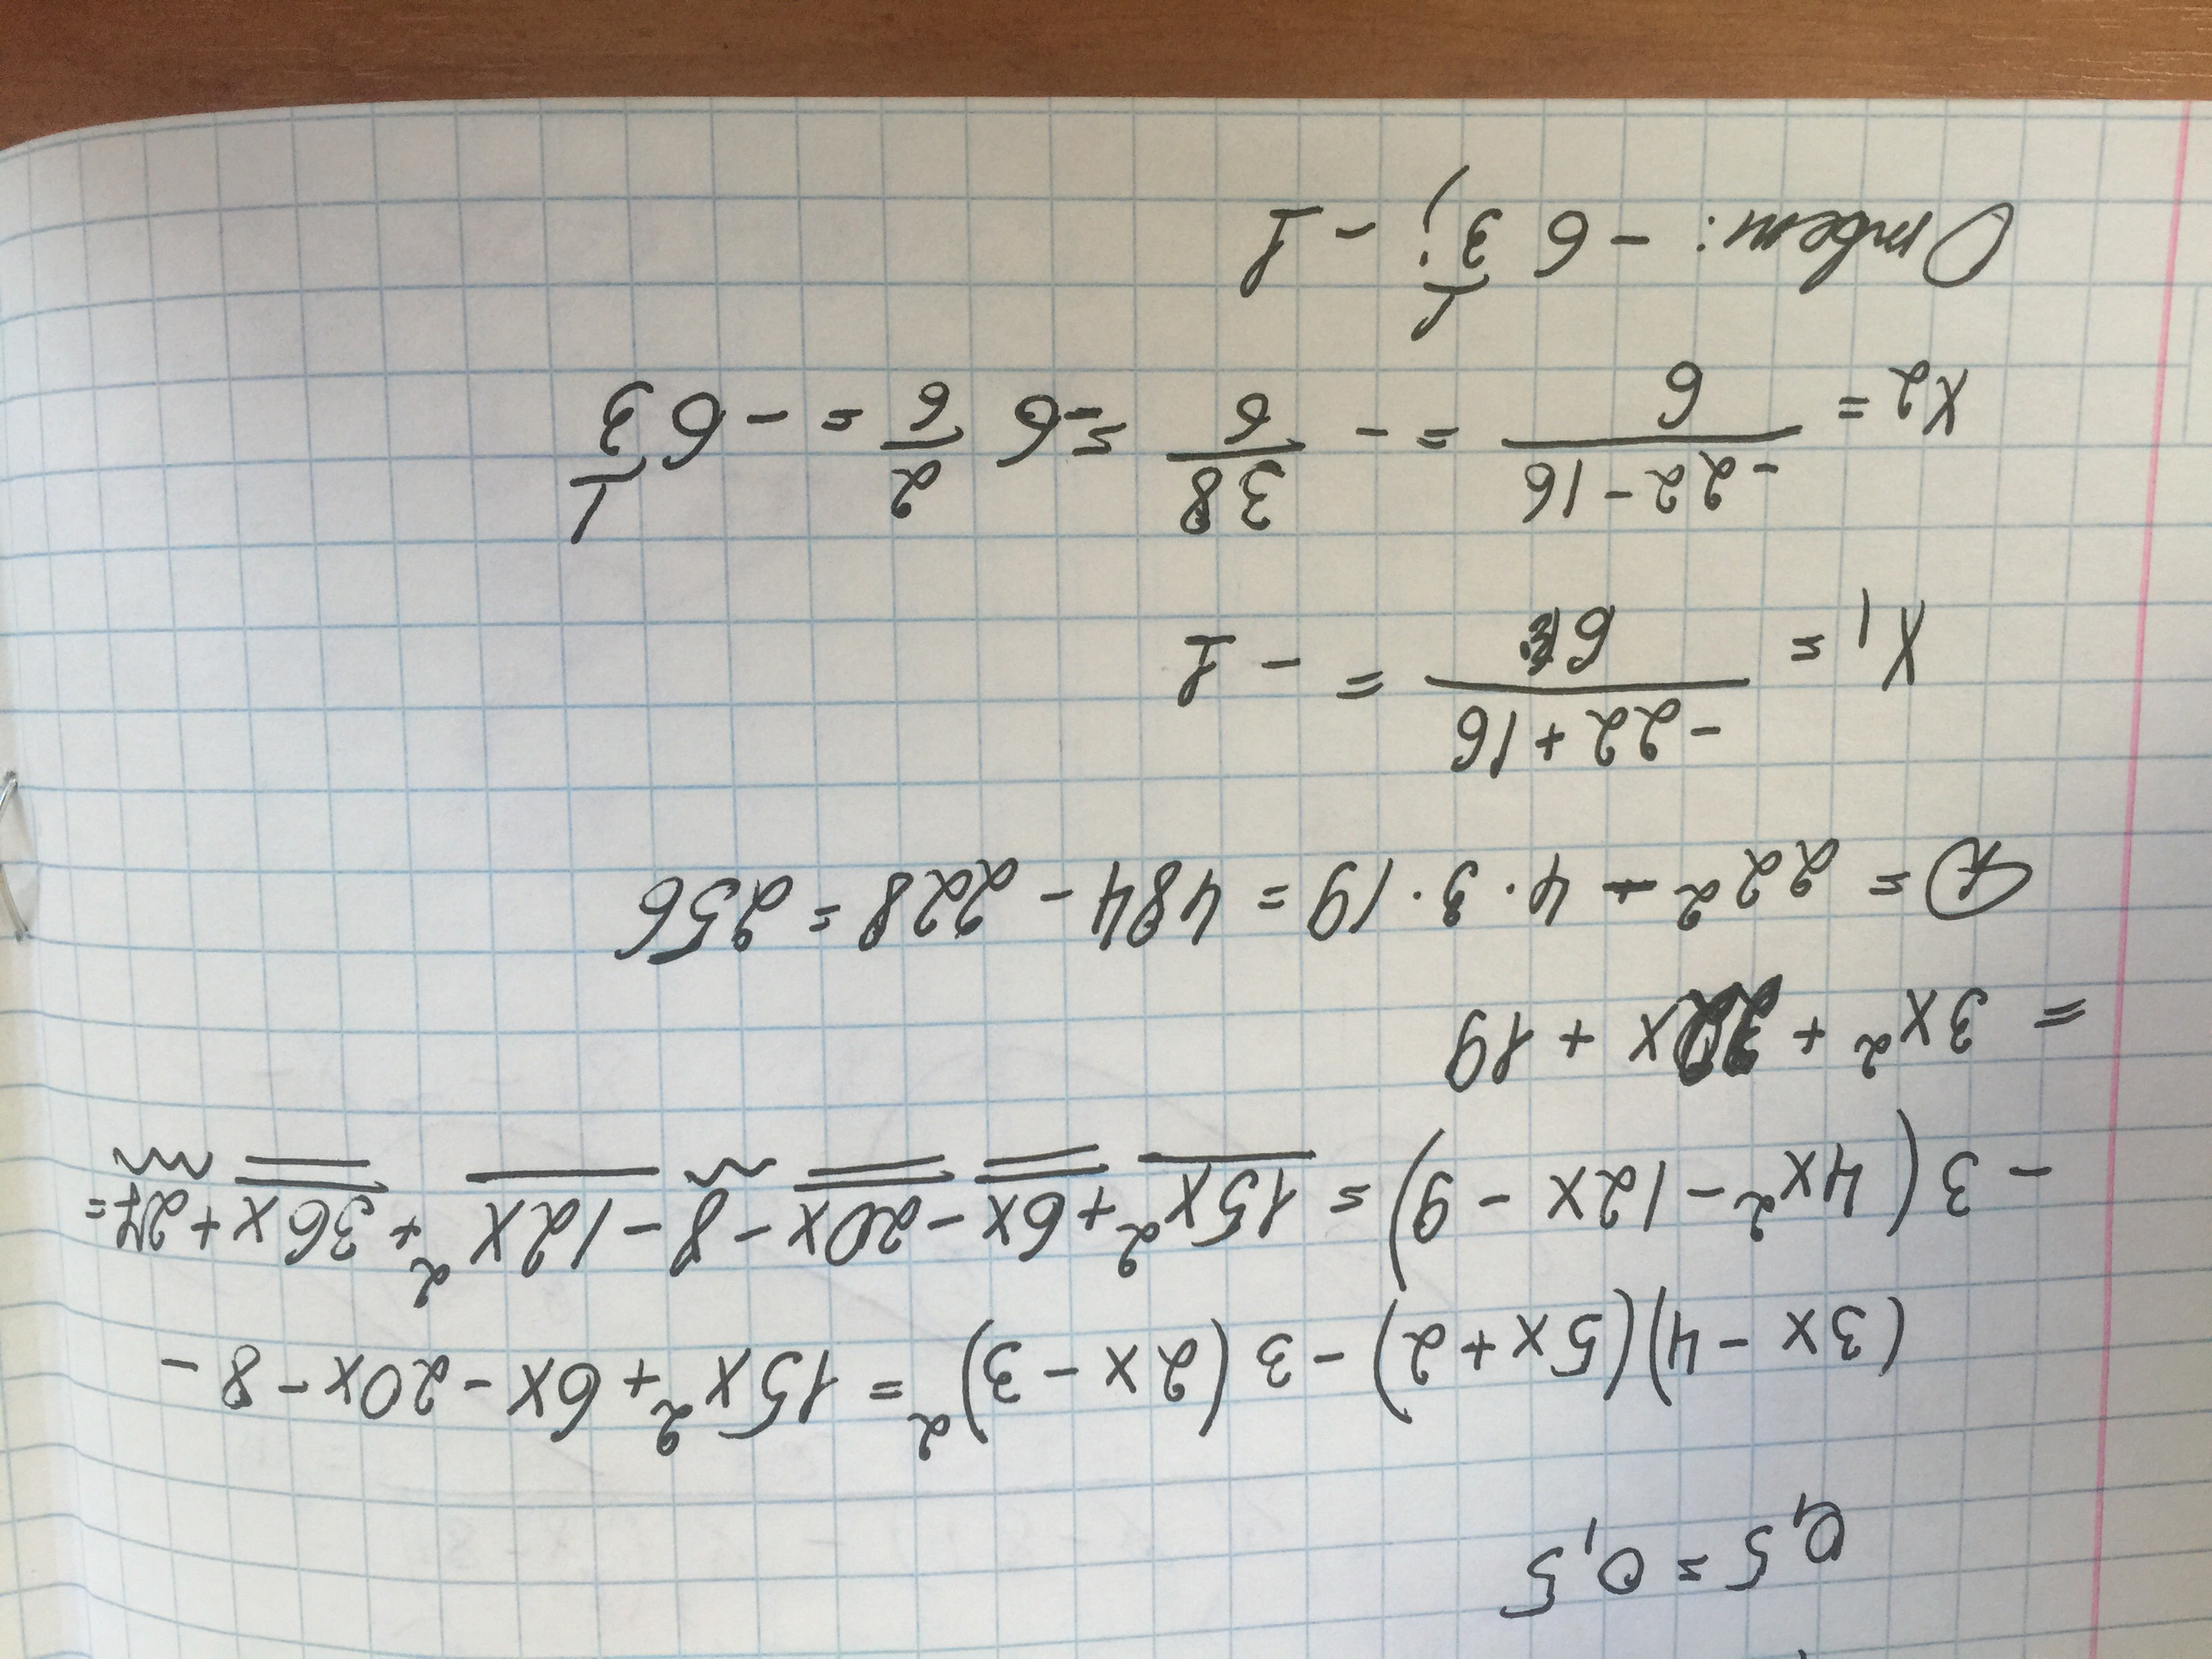 0,5 = 0,5
(3x - 4)(5x + 2) - 3(2x - 3)² = 15x² + 6x - 20x - 8 -
- 3(4x² - 12x - 9) = 15x² + 6x - 20x - 8 - 12x² + 36x + 27 =
= 3x² + 22x + 19
D = 22² - 4 · 3 · 19 = 484 - 228 = 256
x₁ = (-22 + 16)/6 = - 1
x₂ = (-22 - 16)/6 = - 38/6 = -6 2/6 = - 6 1/3
Ответ: - 6 1/3; - 1